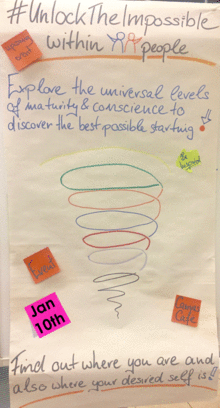 #UnlockTheImpossible
within people
Explore the universal levels
of maturity & conscience to
discover the best possible starting
Jan
10th
Find out where you are and
also where your desired self is!